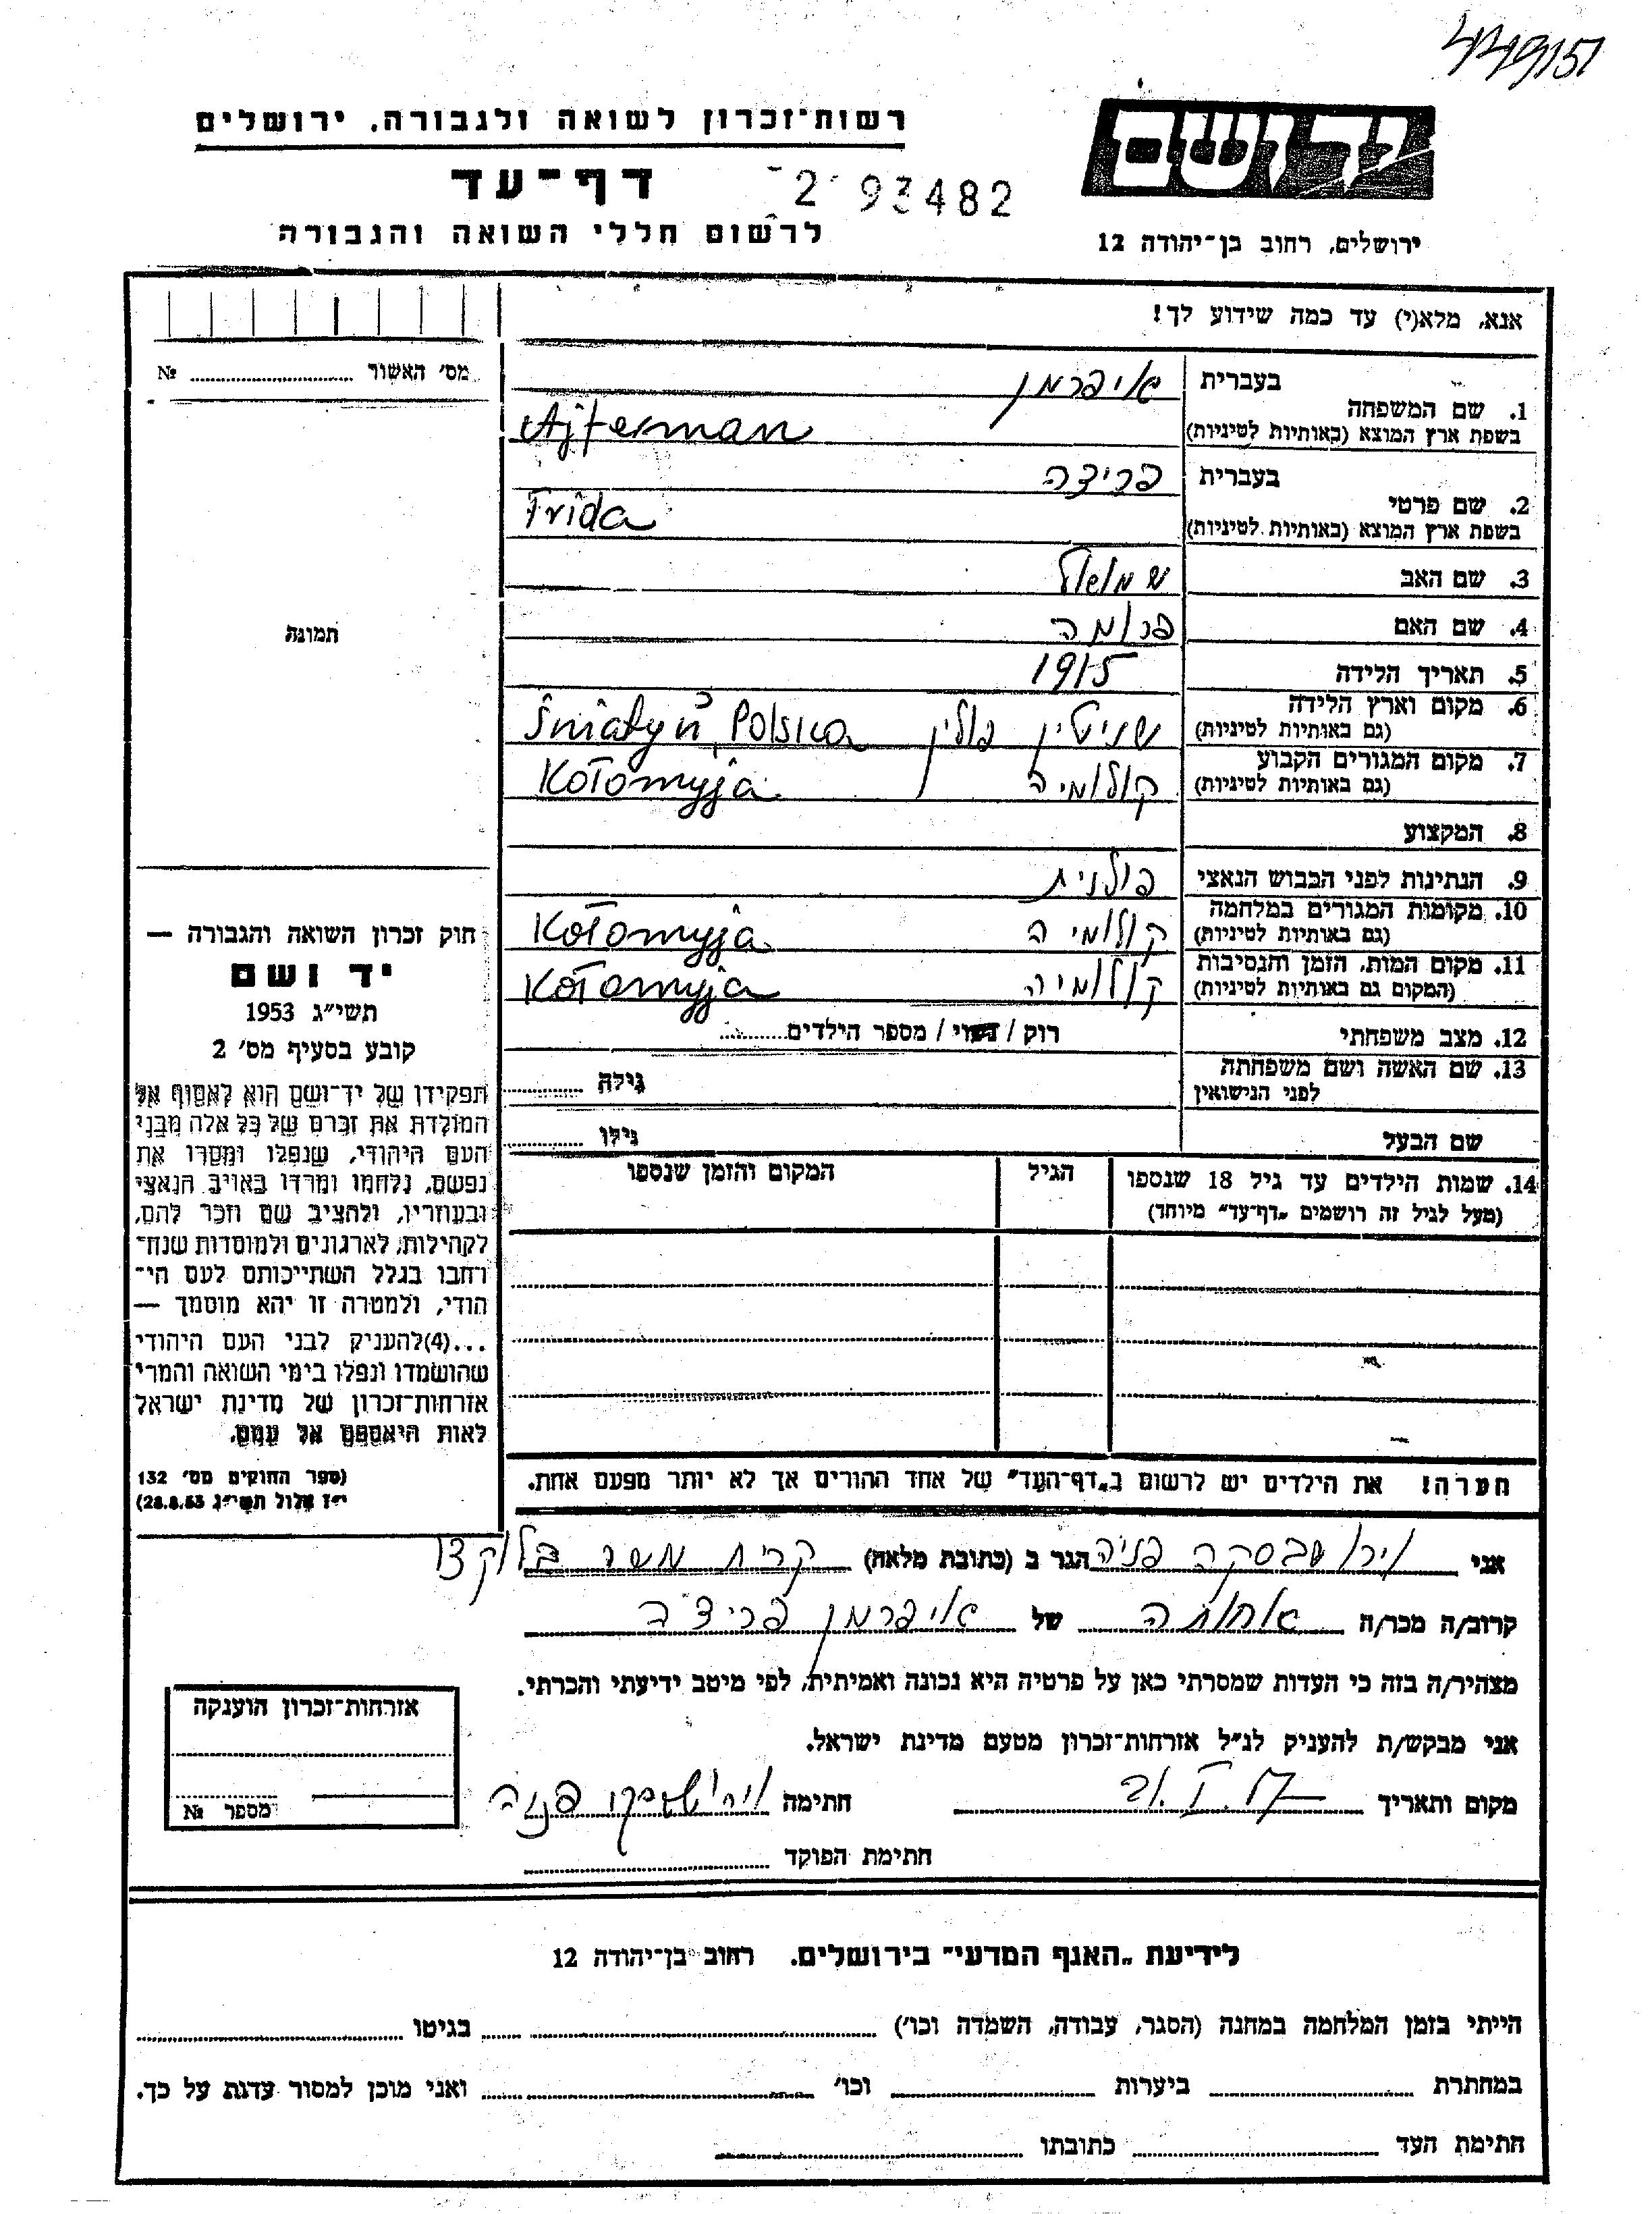 449151
ידושם
רשות־זכרון לשואה ולגבורה, ירושלים
דף־עד
2 93482
לרשום חללי השואה והגבורה
ירושלים, רחוב בן־יהודה 12
אנא, מלא(י) עד כמה שידוע לך!
מס' האשור № ..........
1. שם המשפחה
בעברית איפרמן
בשפת ארץ המוצא (באותיות לטיניות) Ajferman
2. שם פרטי
בעברית פרידה
בשפת ארץ המוצא (באותיות לטיניות) Frida
3. שם האב שמואל
4. שם האם פרומה
תמונה
5. תאריך הלידה 1915
6. מקום וארץ הלידה שניטין פולין Śniatyń, Polska
(גם באותיות לטיניות)
7. מקום המגורים הקבוע קולומיה Kołomyja
(גם באותיות לטיניות)
8. המקצוע
9. הנתינות לפני הכבוש הנאצי פולנית
10. מקומות המגורים במלחמה קולומיה Kołomyja
(גם באותיות לטיניות)
11. מקום המות, הזמן והנסיבות קולומיה Kołomyja
(המקום גם באותיות לטיניות)
12. מצב משפחתי רוק / נשוי / מספר הילדים..........
13. שם האשה ושם משפחתה גילה ..........
לפני הנישואין
שם הבעל גילו ..........
14. שמות הילדים עד גיל 18 שנספו הגיל המקום והזמן שנספו
(מעל לגיל זה רושמים „דף־עד" מיוחד)
חוק זכרון השואה והגבורה —
יד ושם
תשי"ג 1953
קובע בסעיף מס' 2
תפקידו של יד־ושם הוא לאסוף אל
המולדת את זכרם של כל אלה מבני
העם היהודי, שנפלו ומסרו את
נפשם, נלחמו ומרדו באויב הנאצי
ובעוזריו, ולהציב שם וזכר להם,
לקהילות, לארגונים ולמוסדות שנח־
רבו בגלל השתייכותם לעם הי־
הודי, ולמטרה זו יהא מוסמך —
...(4)להעניק לבני העם היהודי
שהושמדו ונפלו בימי השואה והמרי
אזרחות־זכרון של מדינת ישראל
לאות היאספם אל עמם.
(ספר החוקים מס' 132
י"ז אלול תשי"ג 28.8.53)
הערה! את הילדים יש לרשום ב„דף־העד" של אחד ההורים אך לא יותר מפעם אחת.
אני פניה הגר ב (כתובת מלאה) קרית משה בלוק
קרוב/ה מכר/ה אחותה של איפרמן פרידה
מצהיר/ה בזה כי העדות שמסרתי כאן על פרטיה היא נכונה ואמיתית, לפי מיטב ידיעתי והכרתי.
אני מבקש/ת להעניק לנ"ל אזרחות־זכרון מטעם מדינת ישראל.
מקום ותאריך 21.I.57 חתימה פניה
חתימת הפוקד ..........
אזרחות־זכרון הוענקה
מספר №
לידיעת „האגף המדעי" בירושלים, רחוב בן־יהודה 12
הייתי בזמן המלחמה במחנה (הסגר, עבודה, השמדה וכו') .......... בגיטו ..........
במחתרת .......... ביערות .......... וכו' .......... ואני מוכן למסור עדות על כך.
חתימת העד .......... כתובתו ..........